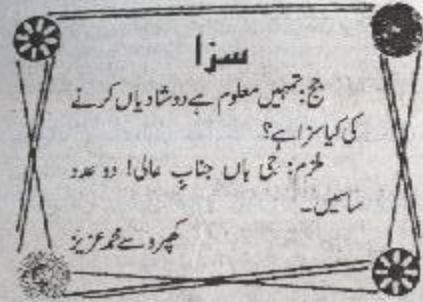 سزا
جج: تمہیں معلوم ہے دو شادیاں کرنے
کی کیا سزا ہے؟
ملزم: جی ہاں جنابِ عالی! دو عدد
ساسیں۔
کھپرو سے محمد عزیز